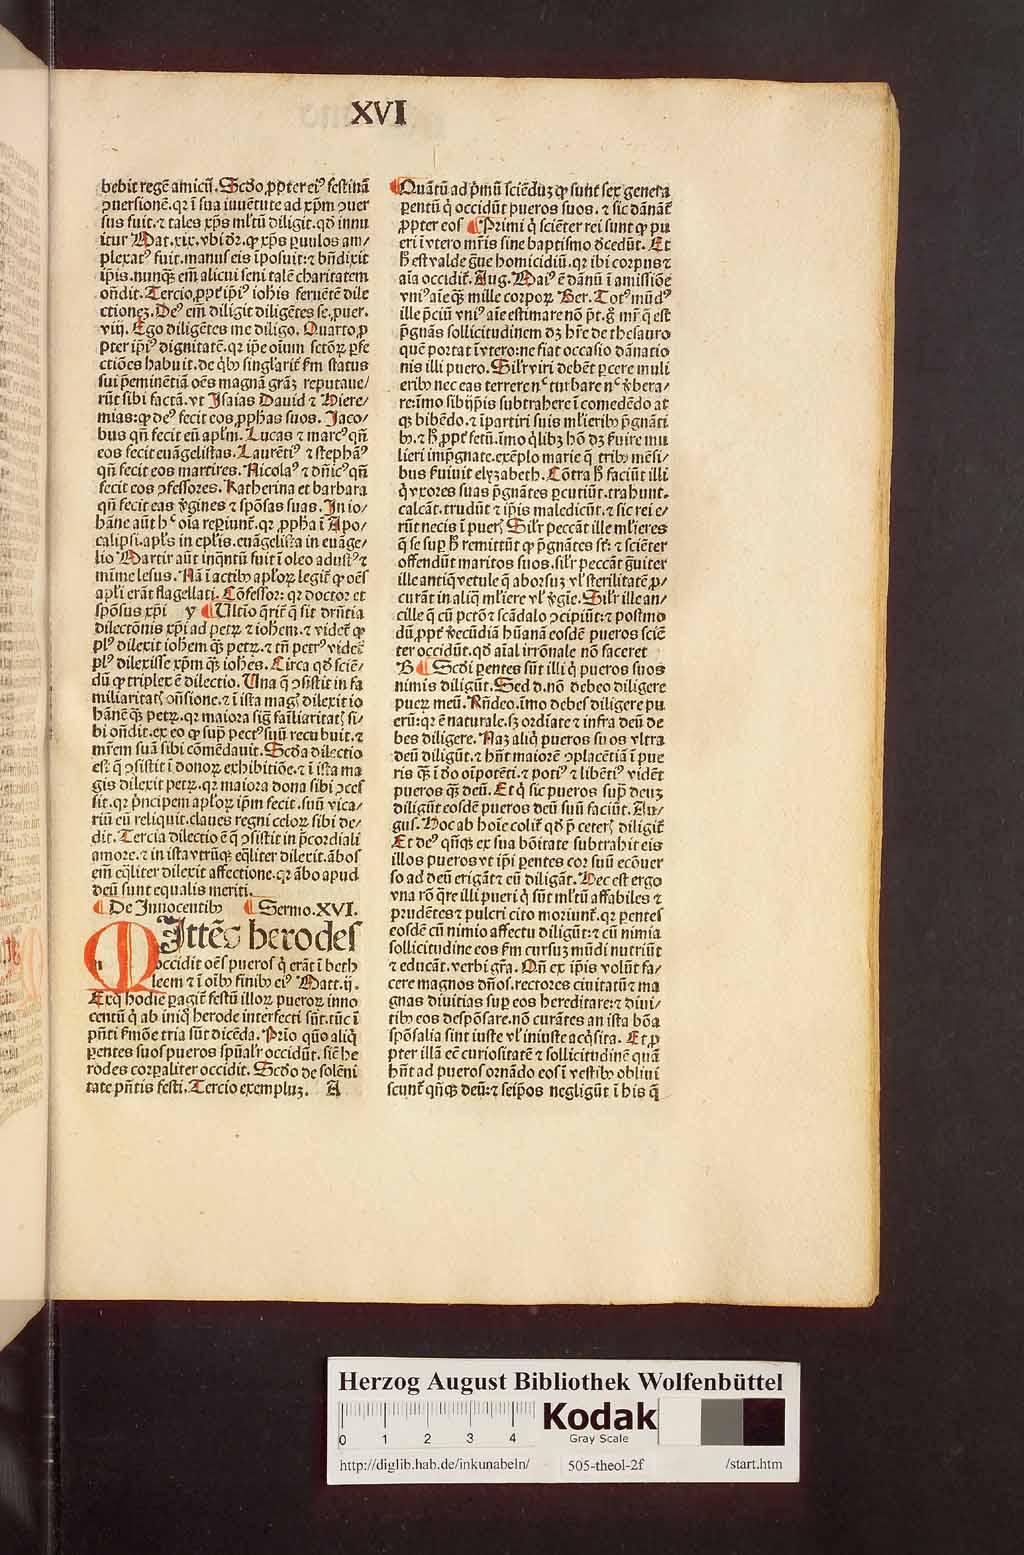 XVI
bebit regē amicū. Scd̓o ꝓpter ei⁹ festinā
ꝯuersionē. qꝛ ī sua iuuētute ad xp̄m ꝯuer
sus fuit. ⁊ tales xp̄s ml̓tū diligit. qd̓ innu
itur Mat. xix. vbi dr̄. ꝙ xp̄s ꝑuulos am⸗
plexat⁹ fuit. manus eis īposuit: ⁊ bn̄dixit
ip̄is. nunqꝫ em̄ alicui seni talē charitatem
on̄dit. Tercio, ꝓpt̓ ip̄i⁹ ioh̓is feruētē dile
ctionez. De⁹ em̄ diligit diligētes se, puer.
viij. Ego diligētes me diligo. Quarto, ꝓ
pter ip̄i⁹ dignitatē. qꝛ ip̄e oīum sctōꝝ ꝑfe
ctiōes habuit. de qͥbꝫ singl̓arit̓ ẜm status
sui p̄eminētiā oēs magnā gr̄aꝫ reputaue⸗
rūt sibi factā. vt Isaias Dauid ⁊ Hiere⸗
mias: ꝙ de⁹ fecit eos ꝓph̓as suos. Jaco⸗
bus qn̄ fecit eū apl̓m. Lucas ⁊ marc⁹ qn̄
eos fecit euāgelistas. Laurēti⁹ ⁊ stephan⁹
qn̄ fecit eos martires. Nicola⁹ ⁊ dn̄ic⁹ qn̄
fecit eos ꝯfessores. Katherina et barbara
qn̄ fecit eas v̓gines ⁊ spōsas suas. In io⸗
hāne aūt hᶜ oīa reꝑiunt̓. qꝛ ꝓph̓a ī Apo⸗
calipsi. apl̓s in ep̄lis. euāgelista in euāge⸗
lio Martir aūt inqn̄tū fuit ī oleo adust⁹ ⁊
mīme lesus. Nā ī actibꝫ apl̓oꝝ legit̓ ꝙ oēs
apl̓i erāt flagellati. Cōfessor: qꝛ doctor et
spōsus xp̄i y Ultīo q̄rit̓ q̄ sit dr̄ntia
dilectōnis xp̄i ad petꝝ ⁊ ioh̓em. ⁊ videt̓ ꝙ
pl⁹ dilexit ioh̓em qꝫ petꝝ. ⁊ tn̄ petr⁹ videt̓
pl⁹ dilexisse xp̄m qꝫ ioh̓es. Circa qd̓ sciē⸗
dū ꝙ triplex ē dilectio. Una q̄ ꝯsistit in fa
miliaritatꝭ on̄sione. ⁊ ī ista magꝭ dilexit io
hānē qꝫ petꝝ. qꝛ maiora siḡ fail̓iaritatꝭ si⸗
bi on̄dit. ex eo ꝙ suꝑ pect⁹ suū recubuit. ⁊
mr̄em suā sibi cōmēdauit. Scd̓a dilectio
est q̄ ꝯsistit ī donoꝝ exhibitiōe. ⁊ ī ista ma
gis dilexit petꝝ. qꝛ maiora dona sibi ꝯces
sit. qꝛ pͥncipem apl̓oꝝ ip̄m fecit. suū vica⸗
riū eū reliquit. claues regni celoꝝ sibi de⸗
dit. Tercia dilectio ē q̄ ꝯsistit in p̄cordiali
amore. ⁊ in ista vtrūqꝫ eq̄liter dilexit. ābos
em̄ eq̄liter dilexit affectione. qꝛ ābo apud
deū sunt equalis meriti.
De Innocentibꝫ Sermo. XVI.
MIttēs herodes
occidit oēs pueros q̄ erāt ī beth
leem ⁊ ī oībꝫ finibꝫ ei⁹ Matt. ij.
Exq̄ hodie ꝑagit̓ festū illoꝝ pueroꝝ inno
centū q̄ ab iniqͦ herode interfecti sūt. tūc ī
pn̄ti ẜmōe tria sūt dicēda. Prīo quō aliqͥ
ꝑentes suos pueros sp̄ual̓r occidūt. siē he
rodes corꝑaliter occidit. Scd̓o de solēni
tate pn̄tis festi. Tercio exempluꝫ. A
Quātū ad pͥmū sciēduꝫ ꝙ sunt sex genera
ꝑentū qͥ occidūt pueros suos. ⁊ sic dānāt̓
ꝓpter eos Primi qͥ sciēter rei sunt ꝙ pu
eri ī vtero mr̄is sine baptismo d̓cedūt. Et
h̓ est valde g̓ue homicidiū. qꝛ ibi corpus ⁊
aīa occidit̓. Aug. Mai⁹ ē dānū ī amissiōe
vni⁹ aīe qꝫ mille corpoꝝ Ber. Tot⁹ mūd⁹
ille p̄ciū vni⁹ aīe estimare nō pt̄. g̓ mr̄ q̄ est
p̄gnās sollicitudinem dꝫ hr̄e de thesauro
quē portat ī vtero: ne fiat occasio dānatio
nis illi puero. Sil̓r viri debēt ꝑcere muli
eribꝫ nec eas terrere nᶜ turbare nᶜ v̓bera⸗
re: īmo sibijp̄is subtrahere ī comedēdo at
qꝫ bibēdo. ⁊ īpartiri suis ml̓ieribꝫ p̄gnāti
bꝫ. ⁊ h̓ ꝓpt̓ fetū. īmo qͥlibꝫ hō dꝫ ẜuire mu
lieri impgnate. exēplo marie q̄ tribꝫ mēsi⸗
bus ẜuiuit elyzabeth. Cōtra h̓ faciūt illi
qͥ vxores suas p̄gnātes ꝑcutiūt. trahunt.
calcāt. trudūt ⁊ ip̄is maledicūt. ⁊ sic rei e⸗
rūt necis ī puerꝭ Sil̓r peccāt ille ml̓ieres
q̄ se suꝑ h̓ remittūt ꝙ p̄gnātes st̄: ⁊ sciēter
offendūt maritos suos. sil̓r peccāt g̓uiter
ille antiq̄ vetule q̄ aborsuꝫ vl̓ sterilitatē ꝓ⸗
curāt in aliq̄ ml̓iere vl̓ v̓gīe. Sil̓r ille an⸗
cille q̄ cū petōꝫ ⁊ scādalo ꝯcipiūt: ⁊ postmo
dū, ꝓpt̓ v̓ecūdiā hūanā eosdē pueros sciē
ter occidūt. qd̓ aīal irrōnale nō faceret
B Scd̓i ꝑentes sūt illi qͥ pueros suos
nimis diligūt. Sed d. nō debeo diligere
pueꝝ meū. Rn̄deo. īmo debes diligere pu
erū: qꝛ ē naturale. sꝫ ordīate ⁊ infra deū de
bes diligere. Naꝫ aliqͥ pueros suos vltra
deū diligūt. ⁊ hn̄t maiorē ꝯplacētiā ī pue
ris qꝫ ī d̓o oīpotēti. ⁊ poti⁹ ⁊ libēti⁹ vidēt
pueros qꝫ deū. Et qͥ sic pueros suꝑ deuꝫ
diligūt eosdē pueros deū suū faciūt. Au⸗
gus. Hoc ab hoīe colit̓ qd̓ p̄ ceterꝭ diligit̓
Et de⁹ qn̄qꝫ ex sua bōitate subtrahit eis
illos pueros vt ip̄i ꝑentes cor suū ecōuer
so ad deū erigāt ⁊ eū diligāt. Hec est ergo
vna rō q̄re illi pueri qͥ sūt ml̓tū affabiles ⁊
prudētes ⁊ pulcri cito moriunt̓. qꝛ ꝑentes
eosdē cū nimio affectu diligūt: ⁊ cū nimia
sollicitudine eos ẜm cursuꝫ mūdi nutriūt
⁊ educāt. verbi gr̄a. Qn̄ ex ip̄is volūt fa⸗
cere magnos dn̄os. rectores ciuitatū ⁊ ma
gnas diuitias suꝑ eos hereditare: ⁊ diui⸗
tibꝫ eos despōsare. nō curātes an ista bōa
spōsalia sint iuste vl̓ iniuste acqͥsita. Et ꝓ
pter illā eē curiositatē ⁊ sollicitudinē quā
hn̄t ad pueros ornādo eos ī vestibꝫ obliui
scunt̓ qn̄qꝫ deū: ⁊ seip̄os negligūt ī his q̄
Herzog August Bibliothek Wolfenbüttel
0 1 2 3 4
Kodak
Gray Scale
http://diglib.hab.de/inkunabeln/ 505-theol-2f /start.htm